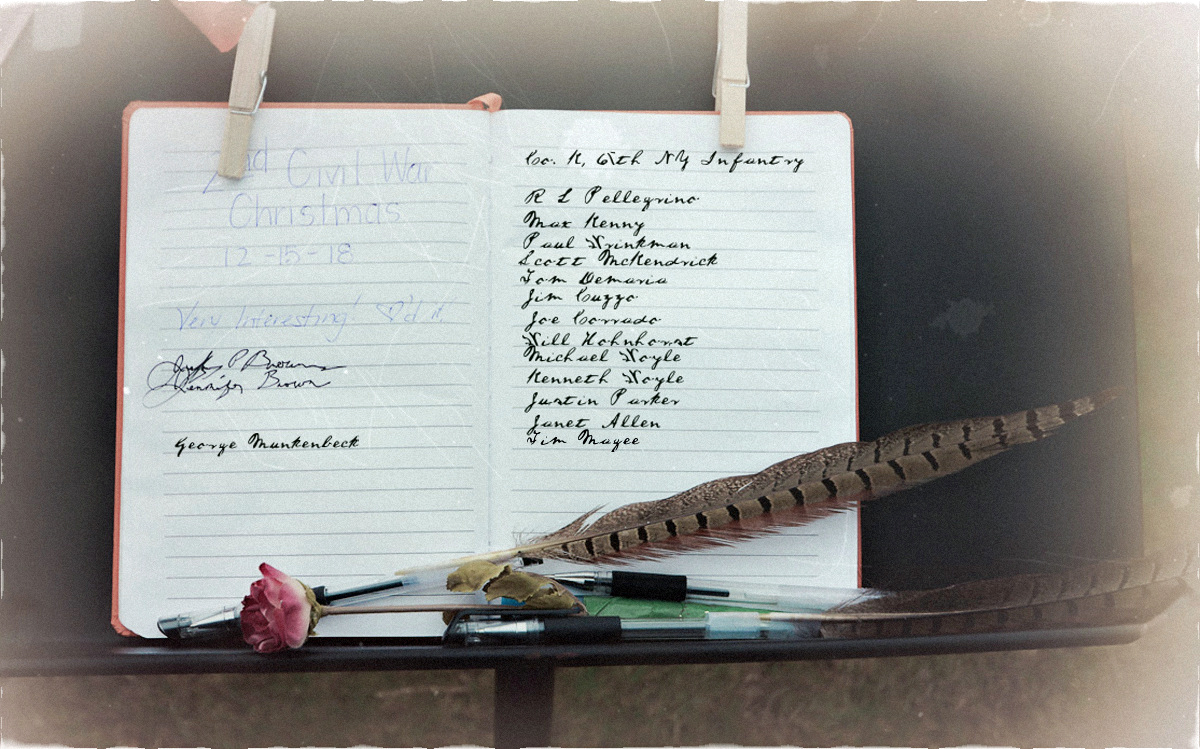 2nd Civil War
Christmas
12-15-18
Very Interesting! ♡'d it
P Brown
Jennifer Brown
George Munkenbeck
Co. K, 67th NY Infantry
R L Pellegrino
Max Kenny
Paul Brinkman
Scott McKendrick
Tom Demaria
Jim Cuzzo
Joe Corrado
Bill Hohnhorst
Michael Boyle
Kenneth Boyle
Justin Parker
Janet Allen
Tim Magee